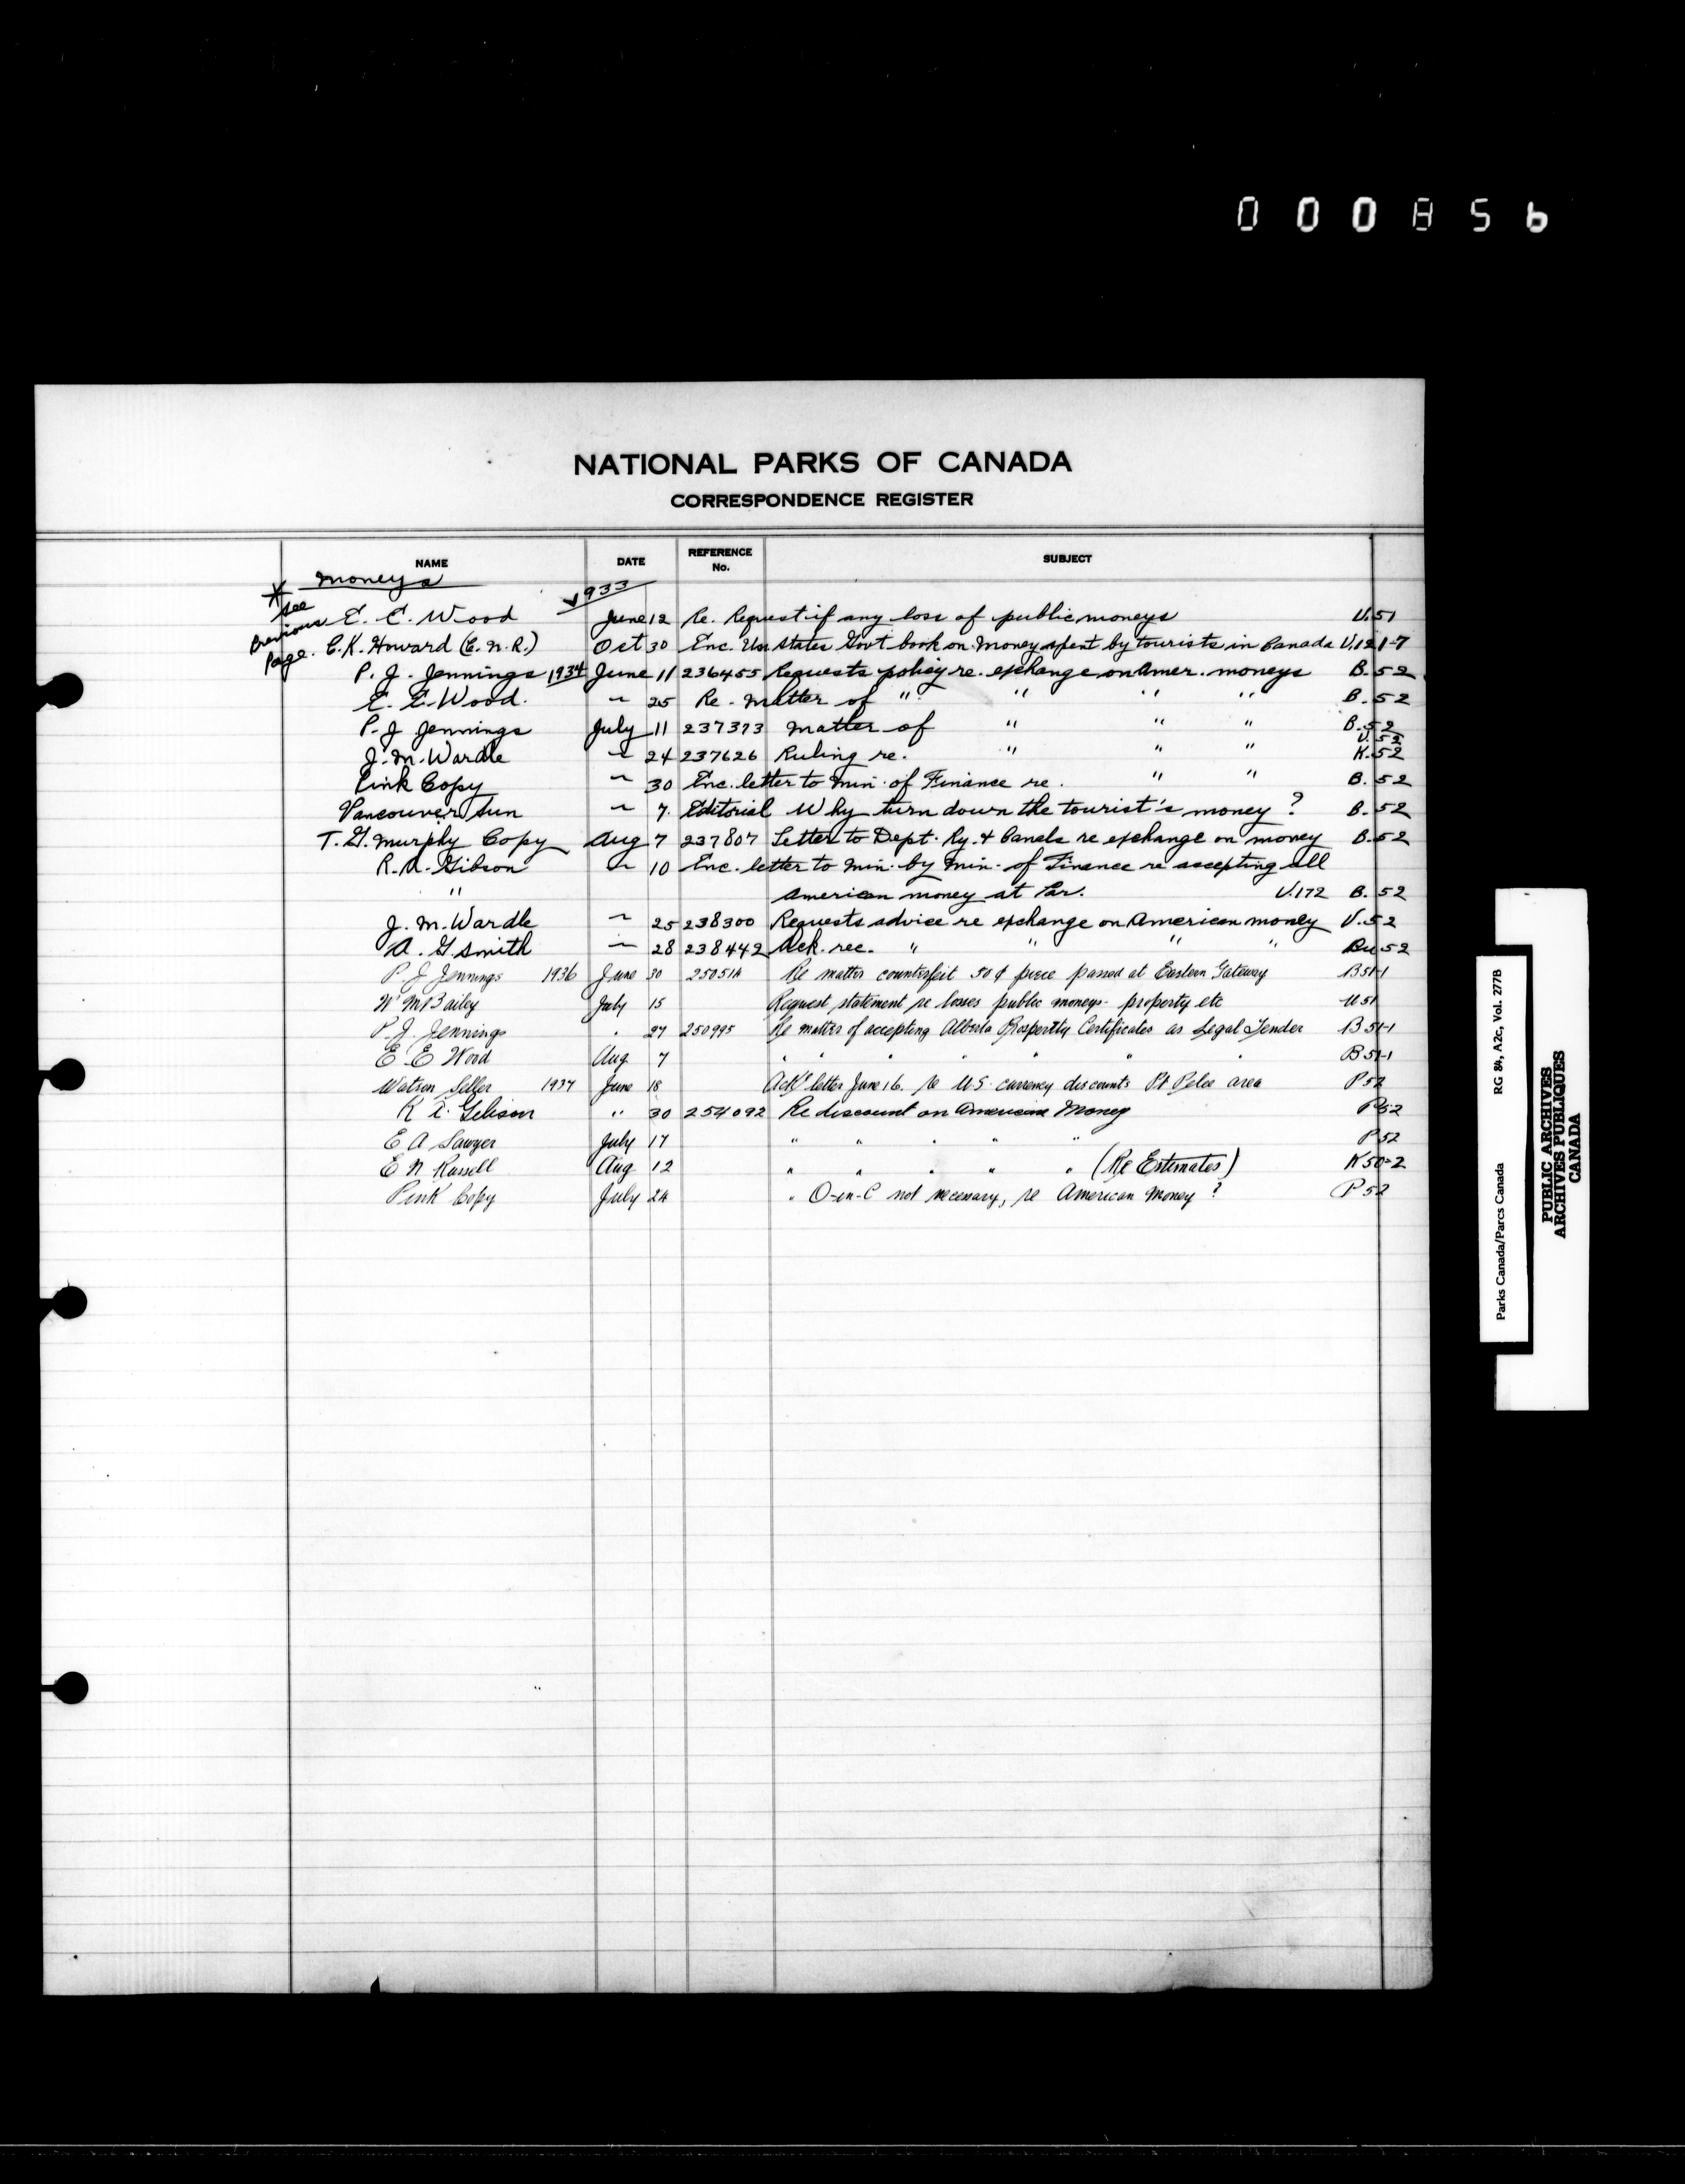 0 0 0 8 5 6
NATIONAL PARKS OF CANADA
CORRESPONDENCE REGISTER
NAME DATE REFERENCE No. SUBJECT
Moneys 1933
* See Previous Page.
E. E. Wood June 12 Re. Request if any loss of public moneys U.51
C.K. Howard (C.N.R.) Oct 30 Enc. Un States Gov't book on Money spent by tourists in Canada U.121-7
P. J. Jennings 1934 June 11 236455 Requests policy re. exchange on Amer. moneys B.52
E. E. Wood. ~ 25 Re - Matter of " " " " B.52
P. J Jennings July 11 237373 Matter of " " " B.52
U.52
J. M. Wardle ~ 24 237626 Ruling re. " " " K.52
Pink Copy ~ 30 Enc. letter to Min. of Finance re. " " B.52
Vancouver Sun ~ 7. Editorial Why turn down the tourist's money? B.52
T. G. Murphy Copy Aug 7 237807 Letter to Dept. Ry. & Canals re exchange on money B.52
R. A. Gibson ~ 10 Enc. letter to Min. by Min. of Finance re accepting all
" American money at Par. U.172 B.52
J. M. Wardle ~ 25 238300 Requests advice re exchange on American money U.52
A. G. Smith ~ 28 238442 Ack. rec. " " " " Bu 52
P J Jennings 1936 June 30 250514 Re matter counterfeit 50¢ piece passed at Eastern Gateway B51-1
W McBailey July 15 Request statement re losses public moneys - property etc U51
P. J. Jennings " 27 250995 Re matter of accepting Alberta Prosperity Certificates as Legal Tender B51-1
E. E Wood Aug 7 " " " " " " " B51-1
Watson Seller 1937 June 18 Ack'g letter June 16. re U.S. currency discounts Pt Pelee area P52
R A. Gibson " 30 254092 Re discount on American Money P52
E A Sawyer July 17 " " " " " P52
E N Russell Aug 12 " " " " " (Re Estimates) K50-2
Pink Copy July 24 " O-in-C not necessary, re American Money? P52
Parks Canada/Parcs Canada RG 84, A2c, Vol. 277B
PUBLIC ARCHIVES
ARCHIVES PUBLIQUES
CANADA